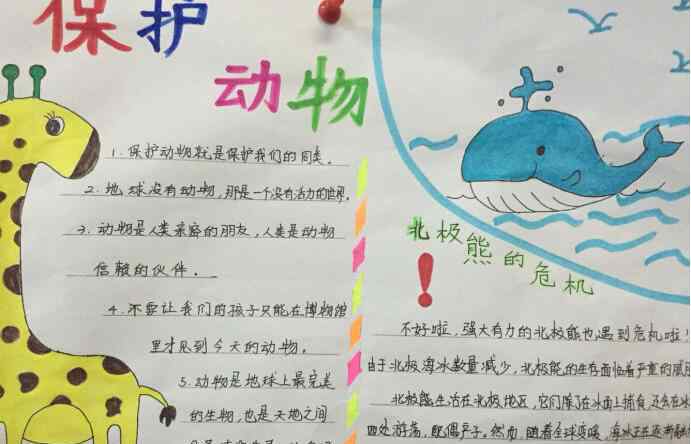 保护
动物
1. 保护动物就是保护我们的同类。
2. 地球没有动物,那是一个没有活力的世界。
3. 动物是人类亲密的朋友,人类是动物
信赖的伙伴。
4. 不要让我们的孩子只能在博物馆
里才见到今天的动物。
5. 动物是地球上最完美
的生物,也是天地之间
北极熊的危机
不好啦,强大有力的北极熊也遇到危机啦!
由于北极海冰数量减少,北极熊的生存面临着严重的威胁
北极熊生活在北极地区,它们除了在冰面上捕食,还会在冰
四处游荡,既偶尔子。然而,随着全球变暖,海冰正在逐渐